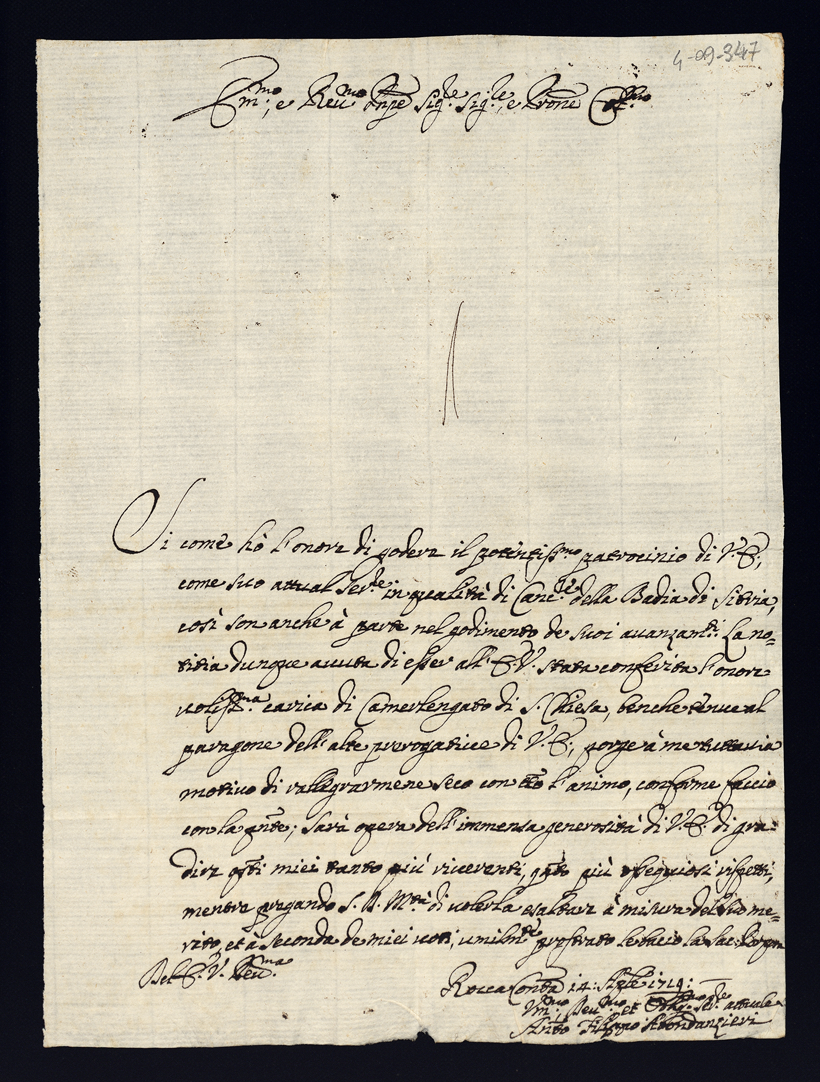 4-09-347
Em.mo, e Reu.mo Pnpe Sig.re Sig.re, e Prone Col.mo
Si come hò l'onore di godere il potentiss.mo patrocinio di V.E.,
come suo attual Ser.re in qualità di Canc.re della Badia di Sitria,
così son anche à parte nel godimento de suoi auanzam.ti. La no=
titia dunque auuta di esser all'E.V. stata conferita l'onore
uoliss.ma carica di Camerlengato di S. Chiesa, benche tenue al
paragone dell'alte prerogatiue di V.E., porge à me tuttauia
motiuo di rallegrarmene seco con tto l'animo, conforme faccio
con la pnte; sarà opera dell'immensa generosità di V.E. di gra=
dire qsti miei tanto più riuerenti, qto più ossequiosi rispetti,
mentre pregando S. D. M.tà di uolerla esaltare à misura del suo me=
rito, et à seconda de miei uoti, umilm.te prostrato le bacio la sac. Porpora
Del E. V. Reu.ma
Rocca Contda 14: Sbre 1719:
Vm.mo, Deu.mo, et Obbg.mo Ser.re attuale
Anto Filippo Abondanzieri